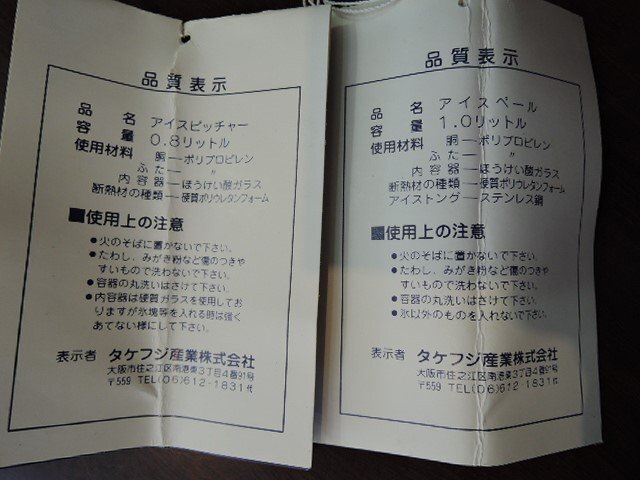 品質表示
品名 アイスピッチャー
容量 0.8リットル
使用材料 胴—ポリプロピレン
ふた— 〃
内容器—ほうけい酸ガラス
断熱材の種類—硬質ポリウレタンフォーム
■使用上の注意
●火のそばに置かないで下さい。
●たわし、みがき粉など傷のつきや
すいもので洗わないで下さい。
●容器の丸洗いはさけて下さい。
●内容器は硬質ガラスを使用してお
りますが氷塊等を入れる時は強く
あてない様にして下さい。
表示者 タケフジ産業株式会社
大阪市住之江区南港東3丁目4番91号
〒559 TEL(06)612-1831代
品質表示
品名 アイスペール
容量 1.0リットル
使用材料 胴—ポリプロピレン
ふた— 〃
内容器—ほうけい酸ガラス
断熱材の種類—硬質ポリウレタンフォーム
アイストング—ステンレス鋼
■使用上の注意
●火のそばに置かないで下さい。
●たわし、みがき粉など傷のつきや
すいもので洗わないで下さい。
●容器の丸洗いはさけて下さい。
●氷以外のものを入れないで下さい。
表示者 タケフジ産業株式会社
大阪市住之江区南港東3丁目4番91号
〒559 TEL(06)612-1831代